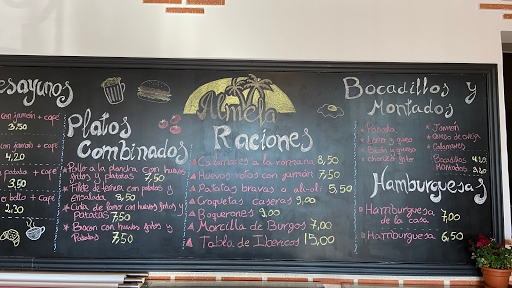 esayunos
con jamón + café
3,50
on jamón + café
4,20
an + café
3,50
bollo + café
2,30
Platos
Combinados
Pollo a la plancha con huevos
fritos y patatas 7,50
Filete de ternera con patatas y
ensalada 8,50
Cinta de lomo con huevos fritos y
patatas 7,50
Bacon con huevos fritos y
Patatas 7,50
Almela
Raciones
Calamares a la romana 8,50
Huevos rotos con jamón 7,50
Patatas bravas a ali-oli 5,50
Croquetas caseras 9,00
Boquerones 9,00
Morcilla de Burgos 7,00
Tabla de Ibéricos 15,00
Bocadillos y
Montados
Lomo y queso
y queso
Chorizo frito
Jamón
Queso de oveja
Calamares
Bocadillos 4,20
Montados
Hamburguesas
Hamburguesa
de la casa 7,00
Hamburguesa 6,50